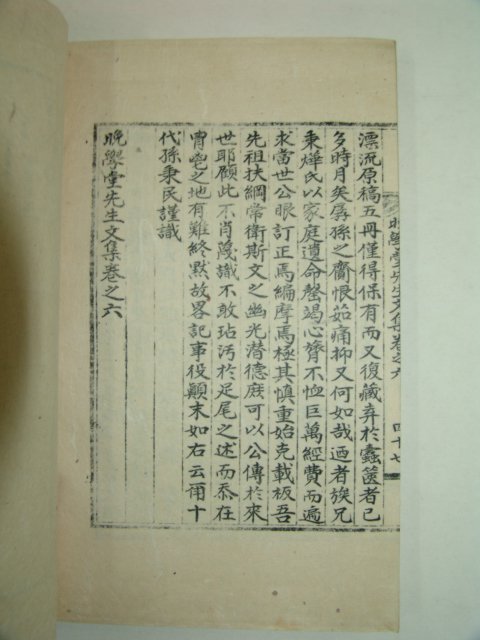 漂流原稿五冊僅得保有而又復藏弃於蠹篋者已
多時月矣孱孫之齎恨茹痛抑又何如哉迺者族兄
秉燁氏以家庭遺命罄竭心膂不恤巨萬經費而遍
求當世公眼訂正焉編摩焉極其愼重始克載板吾
先祖扶綱常衛斯文之幽光潛德庶可以公傳於來
世耶顧此不肖蔑識不敢玷汚於足尾之述而忝在
冑裔之地有難終默故畧記事役顚末如右云爾十
代孫秉民謹識
晩學堂先生文集卷之六
晩學堂先生文集卷之六
四十七